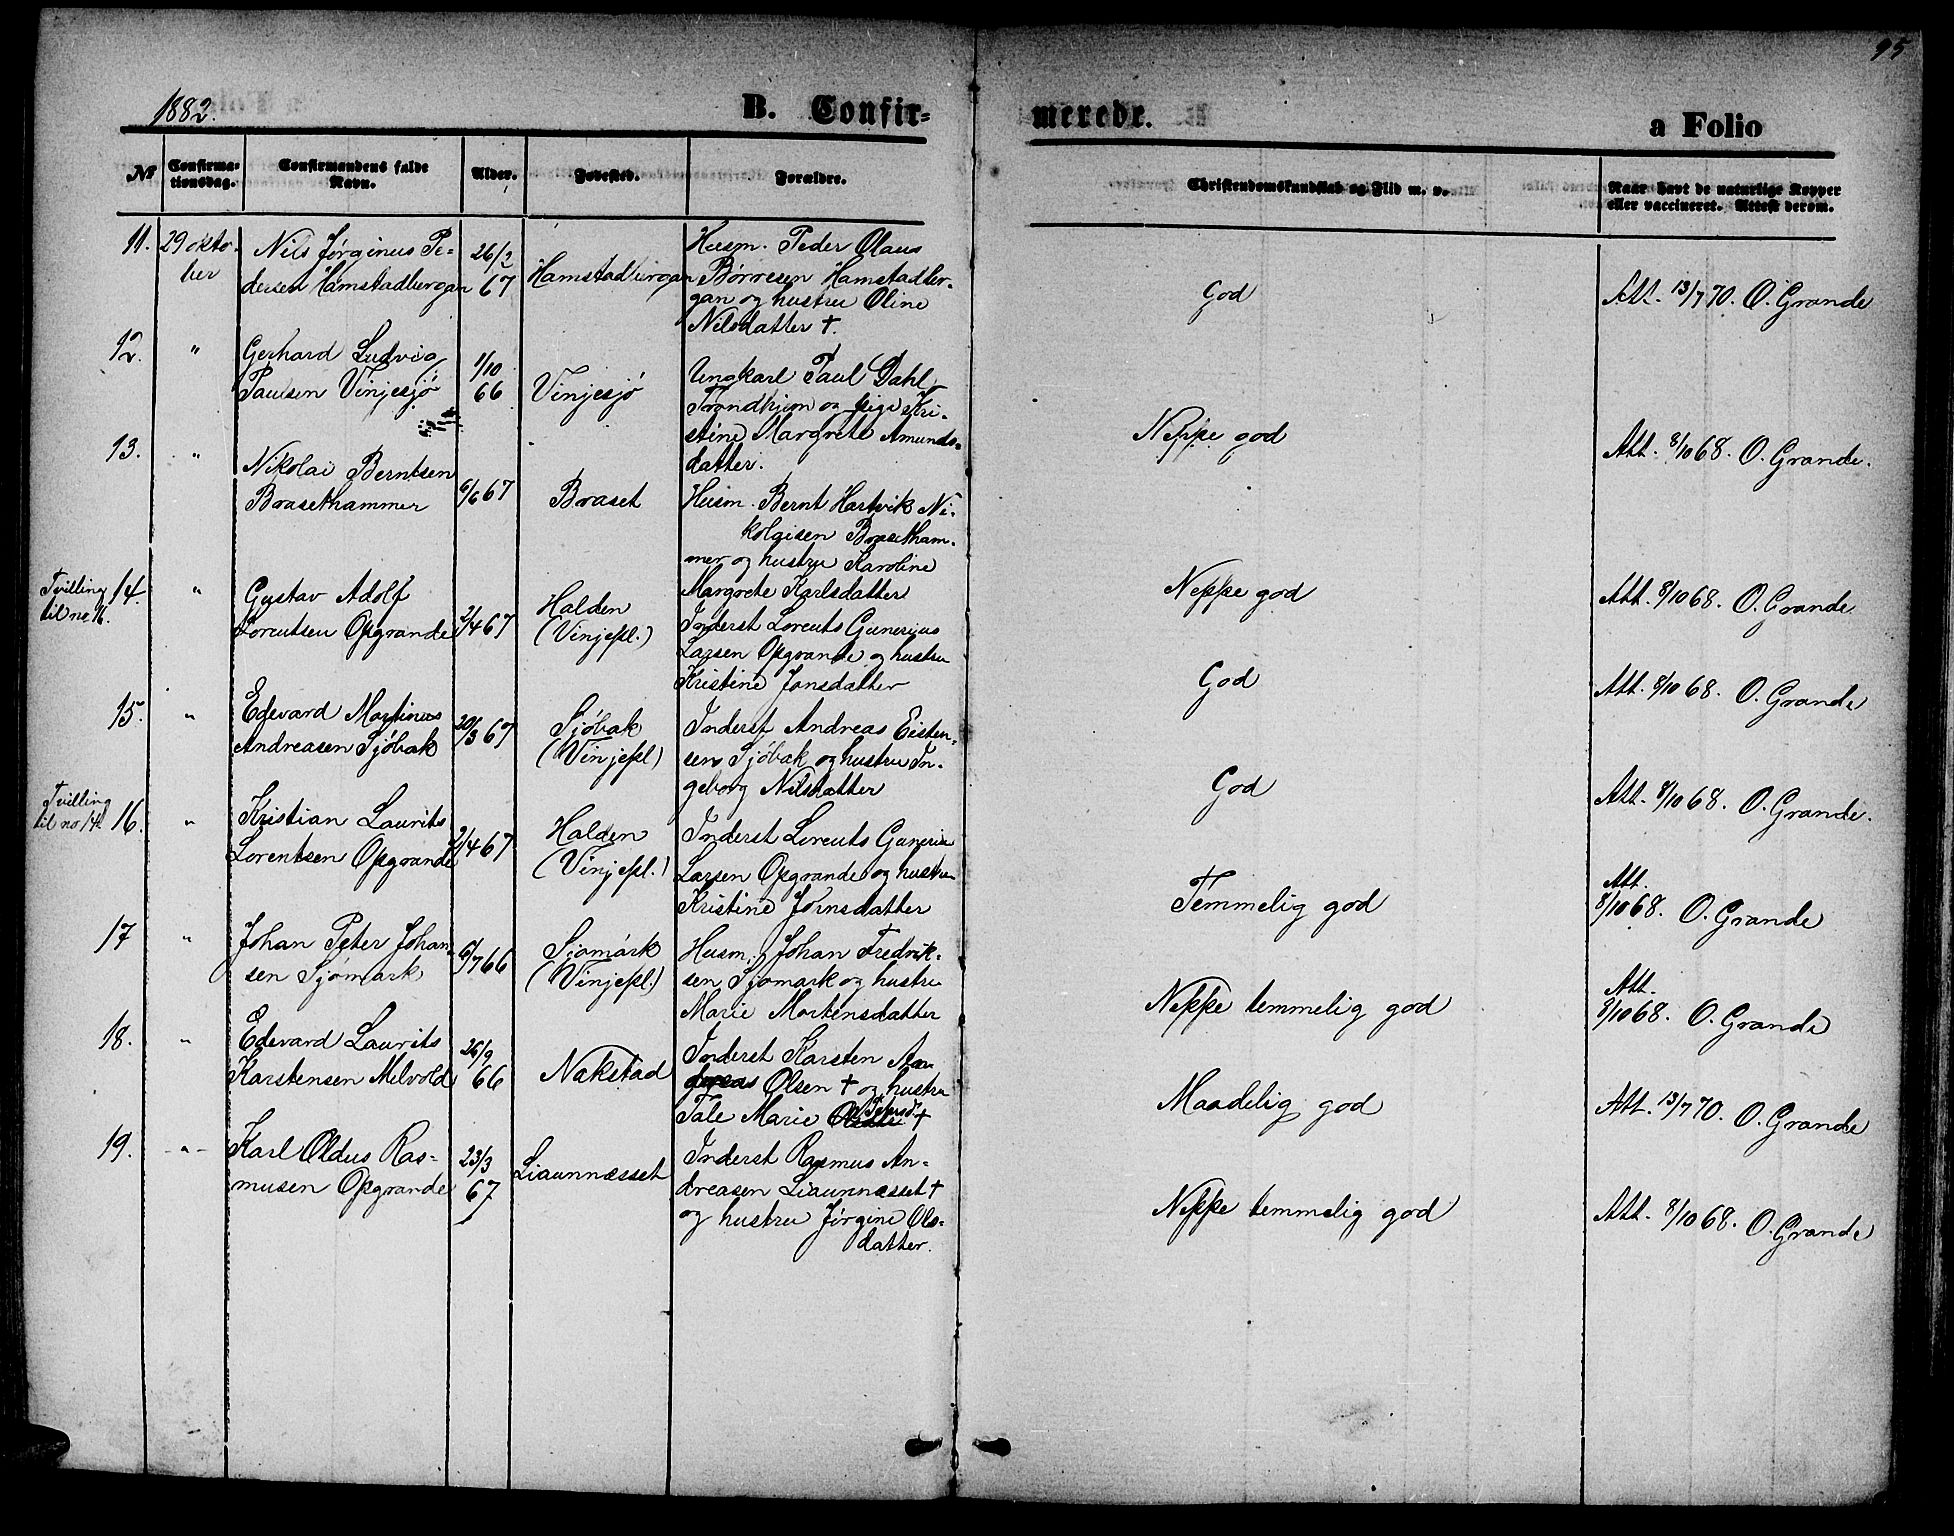 95
1882.
B. Confir-
merede.
a Folio
No
Confirma-
tionsdag.
Confirmandens fulde
Navn.
Alder.
Fødested.
Forældre.
Christendomskundskab og Flid m. v.
Naar havt de naturlige Kopper
eller vaccineret. Attest derom.
11.
29 okto-
ber
Nils Jørginus Pe-
dersen Hamstadbergan
26/2
67
Hamstadbergan
Husm. Peder Olaus
Børresen Hamstadber-
gan og hustru Oline
Nilsdatter †.
God
Att. 13/7 70. O. Grande
12.
"
Gerhard Ludvig
Paulsen Vinjesjö
1/10
66
Vinjesjö
Ungkarl Paul Dahl,
Trondhjem og pige Kri-
stine Margrete Amunds-
datter.
Neppe god
Att. 8/10 68. O. Grande.
13.
"
Nikolai Berntsen
Brasethammer
6/6 67
Braset
Husm. Bernt Hartvik Ni-
kolaisen Brasetham-
mer og hustru Karoline
Margrete Karlsdatter
Neppe god
Att. 8/10 68. O. Grande
Tvilling
til no 16.
14.
"
Gustav Adolf
Lorentsen Opgrande
2/4 67
Halden
(Vinjepl.)
Inderst Lorents Gunerius
Larsen Opgrande og hustru
Kristine Jonsdatter
God
Att. 8/10 68. O. Grande
15.
"
Edevard Martinus
Andreasen Sjöbak
20/3 67
Sjöbak
(Vinjepl)
Inderst Andreas Eisten-
sen Sjöbak og hustru In-
geborg Nilsdatter
God
Att. 8/10 68. O. Grande.
Tvilling
til no 14.
16.
"
Kristian Laurits
Lorentsen Opgrande
2/4 67
Halden
(Vinjepl.)
Inderst Lorents Gunerius
Larsen Opgrande og hustru
Kristine Jornsdatter
Temmelig god
Att.
8/10 68. O. Grande
17
"
Johan Peter Johan-
sen Sjömark
6/7 66
Sjömark
(Vinjepl.)
Husm. Johan Fredrik-
sen Sjömark og hustru
Marie Mortensdatter
Neppe temmelig god
Att.
8/10 68. O. Grande
18.
"
Edevard Laurits
Karstensen Melvold
26/9
66
Nakstad
Inderst Karsten An
dreas Olsen † og hustru
Tale Marie †
Maadelig god
Att. 13/7 70. O. Grande
19.
- " -
Karl Oldus Ras-
musen Opgrande
23/3
67
Liaunnæsset
Inderst Rasmus An-
dreasen Liaunnæsset †
og hustru Jørgine Ols-
datter.
Neppe temmelig god
Att. 8/10 68. O. Grande